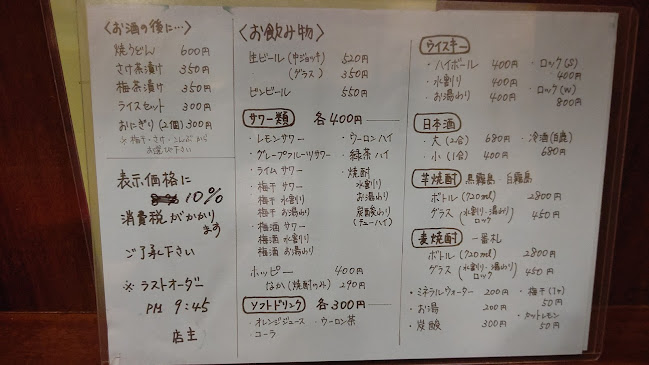 〈お酒の後に…〉
焼うどん 600円
さけ茶漬け 350円
梅茶漬け 350円
ライスセット 300円
おにぎり(2個) 300円
※梅干・さけ・こんぶから
お選び下さい
表示価格に
10%
消費税がかかり
ます
ご了承下さい
※ラストオーダー
PM 9:45
店主
〈お飲み物〉
生ビール(中ジョッキ) 520円
(グラス) 350円
ビンビール 550円
サワー類 各400円
・レモンサワー
・グレープフルーツサワー
・ライムサワー
・梅干サワー
梅干水割り
梅干お湯わり
・梅酒サワー
梅酒水割り
梅酒お湯わり
・ウーロンハイ
・緑茶ハイ
・焼酎
水割り
お湯わり
炭酸わり
(チューハイ)
ホッピー 400円
なか(焼酎のみ) 290円
ソフトドリンク 各300円
・オレンジジュース ・ウーロン茶
・コーラ
ウイスキー
・ハイボール 400円
・水割り 400円
・お湯わり 400円
・ロック(S)
400円
・ロック(W)
800円
日本酒
・大(2合) 680円
・小(1合) 400円
・冷酒(白鹿)
680円
芋焼酎 黒霧島・白霧島
ボトル(720ml) 2800円
グラス(水割り・湯わり ロック) 450円
麦焼酎 一番札
ボトル(720ml) 2800円
グラス(水割り・湯わり ロック) 450円
・ミネラルウォーター 200円
・お湯 200円
・炭酸 300円
・梅干(1ケ)
50円
・カットレモン
50円